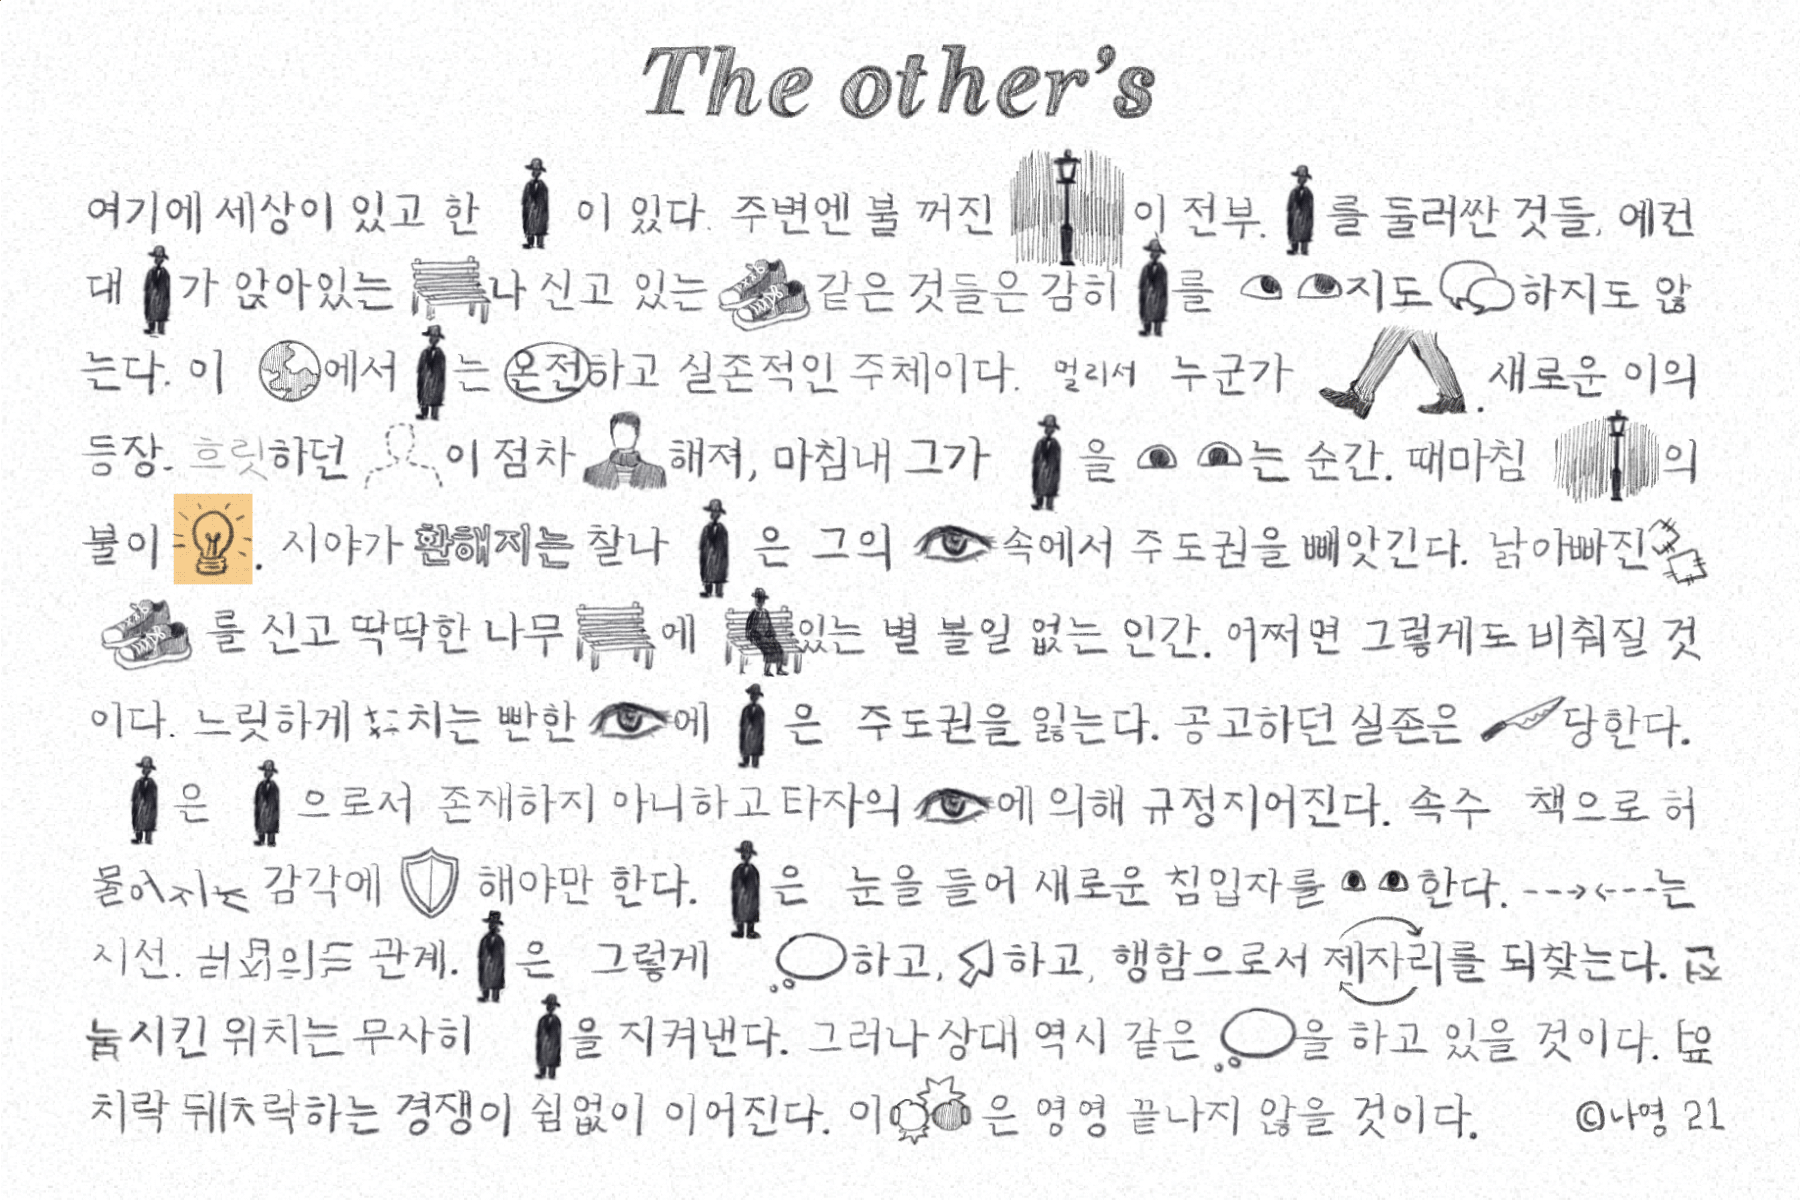 The other's
여기에 세상이 있고 한 이 있다. 주변엔 불 꺼진 이 전부. 를 둘러싼 것들, 에컨
대 가 앉아있는 나 신고 있는 같은 것들은 감히 를 지도 하지도 않
는다. 이 에서 는 온전하고 실존적인 주체이다. 멀리서 누군가 . 새로운 이의
등장. 흐릿하던 이 점차 해져, 마침내 그가 을 는 순간. 때마침 의
불이 . 시야가 환해지는 찰나 은 그의 속에서 주도권을 빼앗긴다. 낡아빠진
를 신고 딱딱한 나무 에 있는 별 볼일 없는 인간. 어쩌면 그렇게도 비춰질 것
이다. 느릿하게 치는 빤한 에 은 주도권을 잃는다. 공고하던 실존은 당한다.
은 으로서 존재하지 아니하고 타자의 에 의해 규정지어진다. 속수 책으로 허
물어지는 감각에 해야만 한다. 은 눈을 들어 새로운 침입자를 한다. 는
시선. 의 관계. 은 그렇게 하고, 하고, 행함으로서 제자리를 되찾는다.
시킨 위치는 무사히 을 지켜낸다. 그러나 상대 역시 같은 을 하고 있을 것이다. 엎
치락 뒤치락하는 경쟁이 쉼없이 이어진다. 이 은 영영 끝나지 않을 것이다. ©나영 21